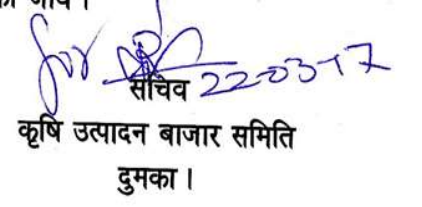 की जाय।
for
सचिव 22-03-17
कृषि उत्पादन बाजार समिति
दुमका।